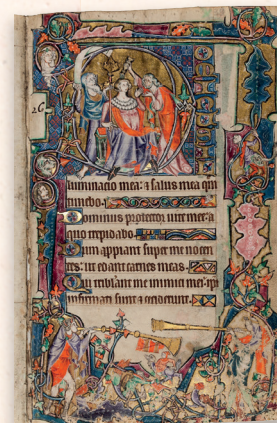 26
luminacio mea: ⁊ salus mea que
timebo.
Dominus protector uite mee: a
quo trepidabo.
Dum appiant super me nocen
tes: ut edant carnes meas.
Qui tribulant me inimici mei: ipi
infirmati sunt ⁊ ceciderunt.